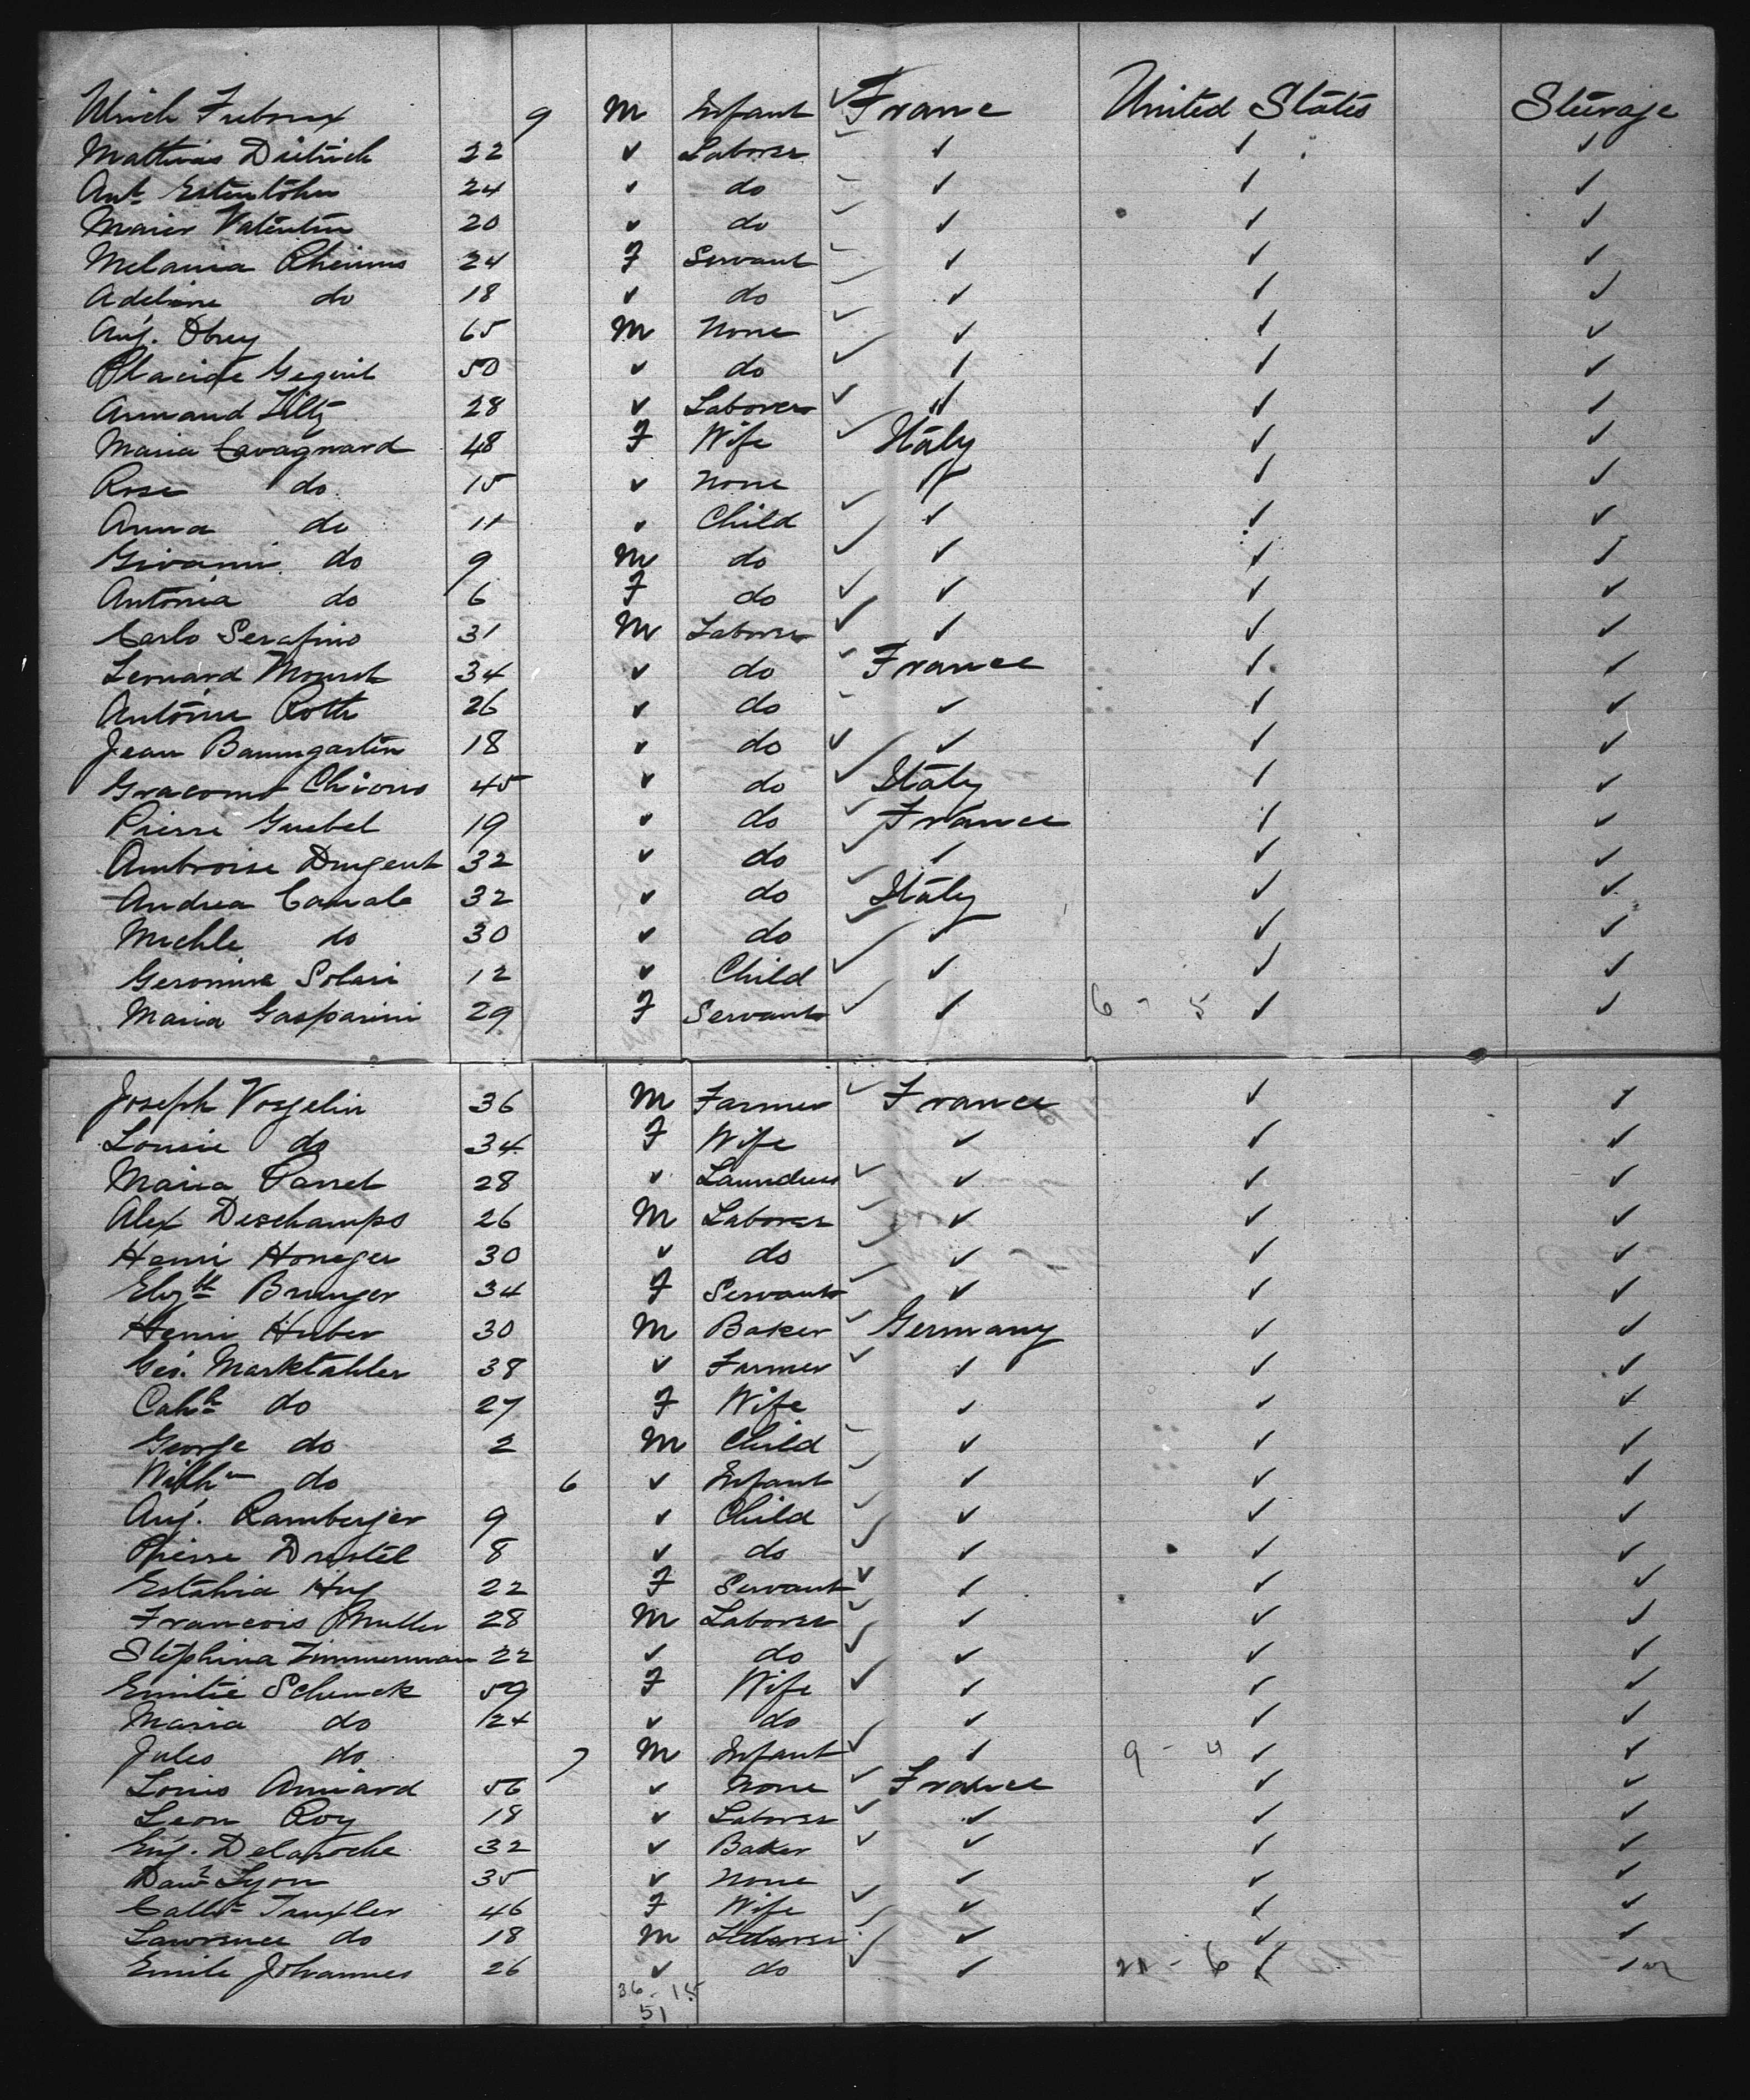 Ulrich Fuboux 9 M Infant ✓ France United States Steerage
Matthias Dietrich 22 ✓ Laborer ✓ ✓ ✓
Ant. 24 ✓ do ✓ ✓ ✓
Maier Valentin 20 ✓ do ✓ ✓ ✓
Melania Rheinus 24 F Servant ✓ ✓ ✓
Adeline do 18 ✓ do ✓ ✓ ✓
Aug. Obry 65 M None ✓ ✓ ✓
Placide Gequit 50 ✓ do ✓ ✓ ✓
Armand Hiltz 28 ✓ Laborer ✓ ✓ ✓
Maria Cavagnard 48 F Wife ✓ Italy ✓ ✓
Rose do 15 ✓ None ✓ ✓ ✓
Anna do 11 ✓ Child ✓ ✓ ✓ ✓
Givanni do 9 M do ✓ ✓ ✓ ✓
Antonia do 6 F do ✓ ✓ ✓ ✓
Carlo Serafino 31 M Laborer ✓ ✓ ✓ ✓
Leonard Mourot 34 ✓ do ✓ France ✓ ✓
Antoine Roth 26 ✓ do ✓ ✓ ✓
Jean Baumgartin 18 ✓ do ✓ ✓ ✓ ✓
Gracomo Chiono 45 ✓ do ✓ Italy ✓ ✓
Pierre Guebel 19 ✓ do ✓ France ✓ ✓
Ambroise Dingent 32 ✓ do ✓ ✓ ✓ ✓
Andrea Canale 32 ✓ do ✓ Italy ✓ ✓
Michle do 30 ✓ do ✓ ✓ ✓ ✓
Geronima Solari 12 ✓ Child ✓ ✓ ✓ ✓
Maria Gasparini 29 F Servant ✓ ✓ 6 - 5 ✓ ✓
Joseph Vogelin 36 M Farmer ✓ France ✓ ✓
Lousie do 34 F Wife ✓ ✓ ✓
Maria Parret 28 ✓ Laundress ✓ ✓ ✓ ✓
Alex Deschamps 26 M Laborer ✓ ✓ ✓ ✓
Henri Honeger 30 ✓ do ✓ ✓ ✓ ✓
Elizth Brunger 34 F Servant ✓ ✓ ✓ ✓
Henri Huber 30 M Baker ✓ Germany ✓ ✓
Geo. Marktahler 38 ✓ Farmer ✓ ✓ ✓ ✓
Cathh do 27 F Wife ✓ ✓ ✓
George do 2 M Child ✓ ✓ ✓
Wilhm do 6 ✓ Infant ✓ ✓ ✓
Aug. Ramberger 9 ✓ Child ✓ ✓ ✓ ✓
Pierre Drustel 8 ✓ do ✓ ✓ ✓ ✓
Estahia Hug 22 F Servant ✓ ✓ ✓ ✓
Francois Muller 28 M Laborer ✓ ✓ ✓ ✓
Stephina Zimmerman 22 ✓ do ✓ ✓ ✓ ✓
Emilie Schenck 59 F Wife ✓ ✓ ✓ ✓
Maria do 24 ✓ do ✓ ✓ ✓ ✓
Jules do 7 M Infant ✓ ✓ 9 - 4 ✓ ✓
Louis Amiard 56 ✓ None ✓ France ✓ ✓
Leon Roy 18 ✓ Laborer ✓ ✓ ✓ ✓
Eug. Delaroche 32 ✓ Baker ✓ ✓ ✓ ✓
Danl Lyon 35 ✓ None ✓ ✓ ✓
Cathe Tanxler 46 F Wife ✓ ✓ ✓ ✓
Lawrence do 18 M Laborer ✓ ✓ ✓ ✓
Emile Johannes 26 ✓ do ✓ ✓ 21 - 6 ✓ ✓
36 - 15
51